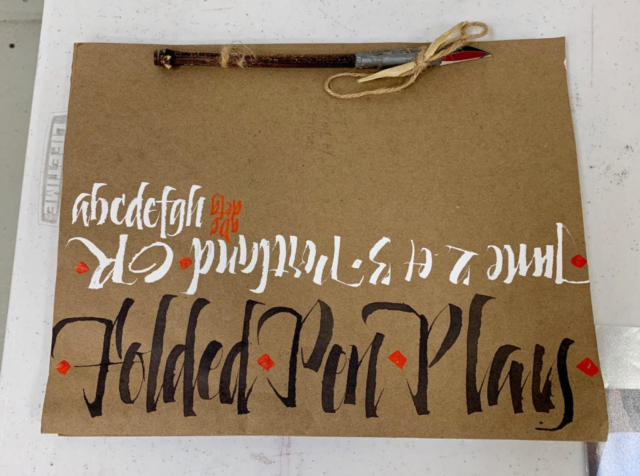 LIFETIME
abcdefgh
abc
defg
June 2 3 · Portland OR
Folded Pen Play